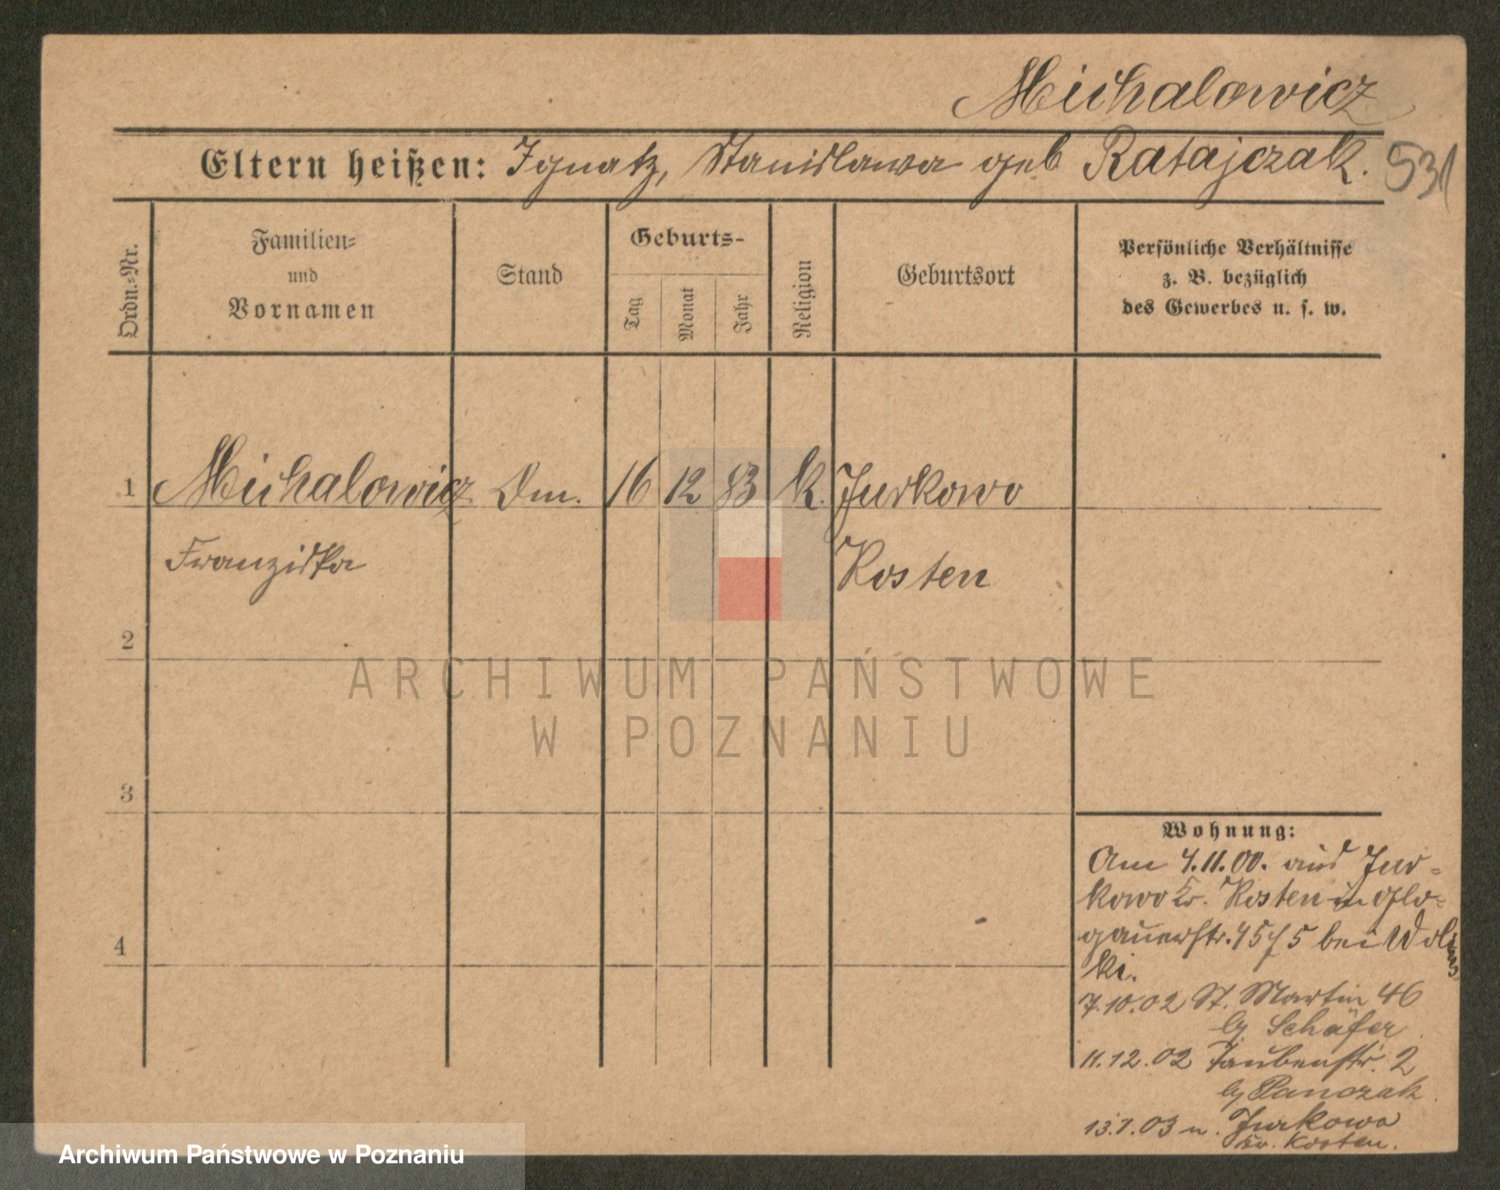 Michalowicz
Eltern heißen: Ignatz, Stanislawa geb Ratajczak.
531
Ordn.=Nr.
Familien=
und
Vornamen
Stand
Geburts-
Tag
Monat
Jahr
Religion
Geburtsort
Persönliche Verhältnisse
z. B. bezüglich
des Gewerbes u. s. w.
1 Michalowicz Dm. 16 12 83 k. Jurkowo
Franziska Kosten
2
ARCHIWUM PAŃSTWOWE
W POZNANIU
3
4
Wohnung:
Am 4.11.00. aus Jur=
kowo Kr. Kosten in Glo=
gauerstr. 45/5 bei
ki.
7.10.02 St. Martin 46
bj Schäfer
11.12.02 Taubenstr. 2
bj Panczak.
13.7.03 n. Jurkowo
Kr. Kosten.
Archiwum Państwowe w Poznaniu